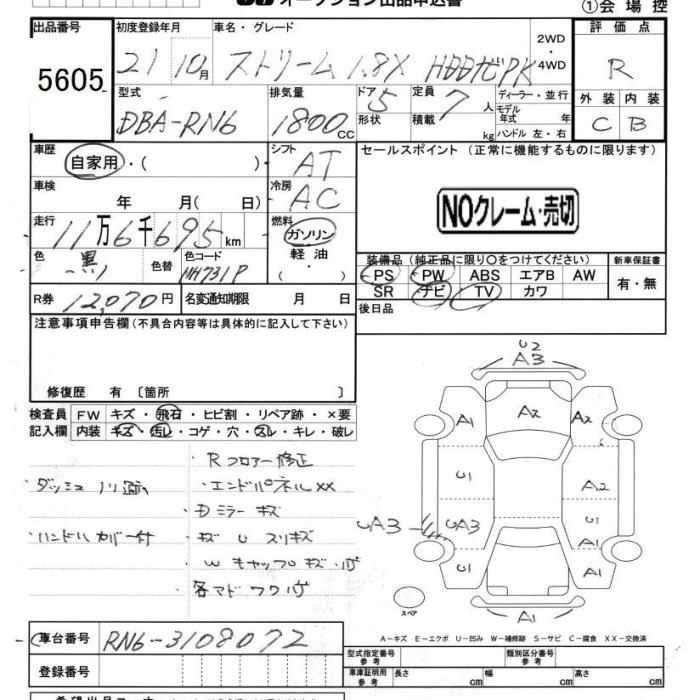 オークション出品申込書
①会場控
出品番号 初度登録年月 車名・グレード 評価点
5605 21 10月 ストリーム 1.8X HDDナビPK 2WD・4WD R
型式 排気量 ドア 定員 ディーラー・並行 外装 内装
DBA-RN6 1800cc 5 7人 モデル年式 年 C B
形状 積載 kg ハンドル 左・右
車歴 シフト セールスポイント (正常に機能するものに限ります)
自家用・( ) AT
車検 冷房
年 月( 日) AC
NOクレーム・売切
走行 燃料
11万6千695km ガソリン
軽油・( )
色 黒 色替 色コード NH731P
装備品(純正品に限り○をつけてください) 新車保証書
PS PW ABS エアB AW 有・無
SR ナビ TV カワ
R券 12,070円 名変通知期限 月 日
後日品
注意事項申告欄(不具合内容等は具体的に記入して下さい)
修復歴 有 〔箇所 〕
検査員 FW キズ・飛石・ヒビ割・リペア跡・×要
記入欄 内装 キズ・汚レ・コゲ・穴・スレ・キレ・破レ
Rフロアー修正
ダッシュ ノリ跡
・エンドパネルXX
・Dミラーキズ
・ハンドルカバー付
・キズ U スリキズ
・Wキャップキズ・
各マドワク
U2
A3
A1 A2 A2
U1 A2
UA3 UA3 U1
A1
U1 A1
スペア
A1
A-キズ E-エクボ U-凹み W-補修跡 S-サビ C-腐食 XX-交換済
車台番号 RN6-3108072
型式指定番号 参考 類別区分番号 参考
登録番号
車庫証明用 参考 長さ cm 幅 cm 高さ cm
希望出品コーナー